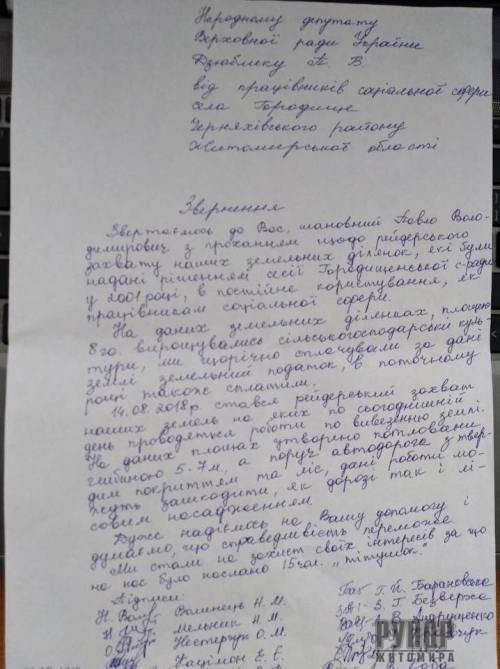 Народному депутату
Верховної ради України
Дзюблику П. В.
від працівників соціальної сфери
села Городище
Черняхівського району
Житомирської області
Звернення
Звертаємось до Вас, шановний Павло Воло-
димирович з проханням щодо рейдерського
захвату наших земельних ділянок, які були
надані рішенням сесії Городищенської с-ради
у 2001 році, в постійне користування, як
працівникам соціальної сфери.
На даних земельних ділянках, площею
8 га. вирощувались сільськогосподарські куль-
тури, ми щорічно сплачували за дані
землі земельний податок, в поточному
році також сплатили.
14.08.2018р стався рейдерський захват
наших земель на яких по сьогоднішній
день проводяться роботи по вивезенню землі.
На даних площах утворено котловани
глибиною 5-7м, а поруч автодорога з твер-
дим покриттям та ліс, дані роботи мо-
жуть зашкодити, як дорозі так і лі-
совим насадженням.
Дуже надіємось на Вашу допомогу і
думаємо, що справедливість переможе
Ми стали на захист своїх інтересів за що
на нас було послано 15 чол. "тітушок".
Підписи:
Волинець Н. М.
Мельник Н. М.
Нестерчук О. М.
Націмок Е. Є.
Г. Й. Барановська
З. Г. Безверха
РУПОР
ЖИТОМИРА